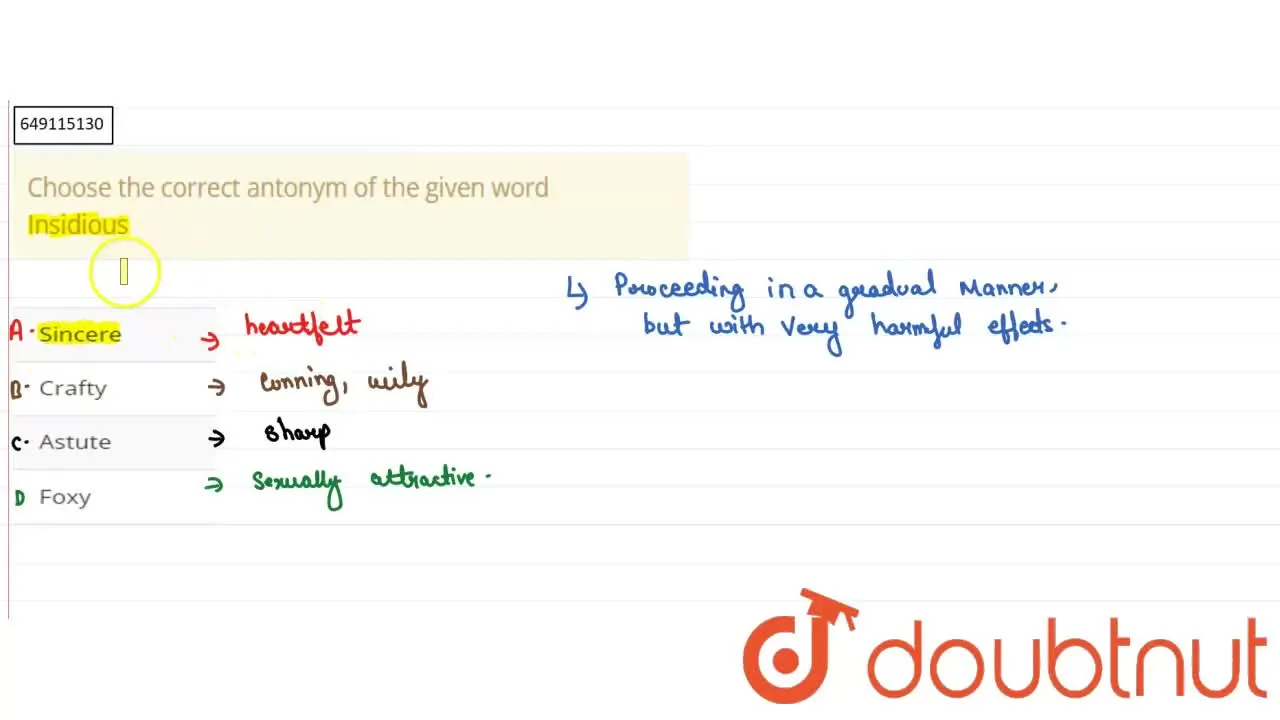 649115130
Choose the correct antonym of the given word
Insidious
↳ Proceeding in a gradual manner,
but with very harmful effects.
A. Sincere → heartfelt
B. Crafty → Conning, wily
C. Astute → sharp
D Foxy → Sexually attractive.
doubtnut